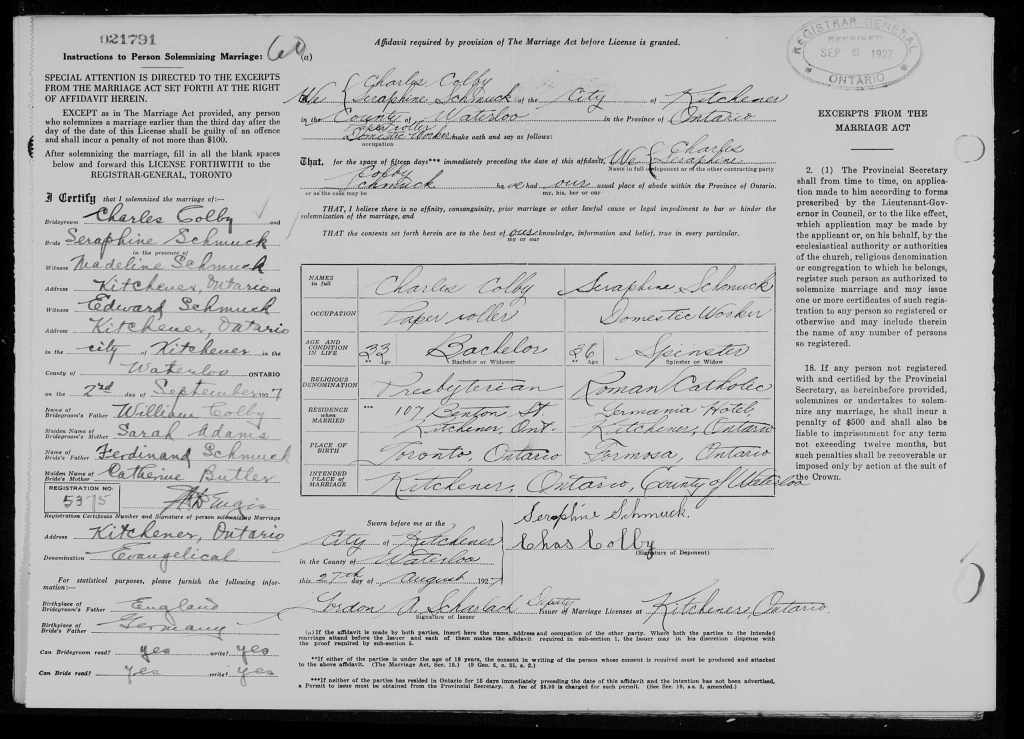 021791
60
Instructions to Person Solemnizing Marriage:
SPECIAL ATTENTION IS DIRECTED TO THE EXCERPTS
FROM THE MARRIAGE ACT SET FORTH AT THE RIGHT
OF AFFIDAVIT HEREIN.
EXCEPT as in The Marriage Act provided, any person
who solemnizes a marriage earlier than the third day after the
day of the date of this License shall be guilty of an offence
and shall incur a penalty of not more than $100.
After solemnizing the marriage, fill in all the blank spaces
below and forward this LICENSE FORTHWITH to the
REGISTRAR-GENERAL, TORONTO
I Certify that I solemnized the marriage of:—
Bridegroom Charles Colby and
Bride Seraphine Schmuck
in the presence of
Witness Madeline Schmuck
Address Kitchener, Ontario and
Witness Edward Schmuck
Address Kitchener, Ontario
in the city of Kitchener in the
County of Waterloo ONTARIO
on the 2nd day of September 1927
Name of Bridegroom's Father William Colby
Maiden Name of Bridegroom's Mother Sarah Adams
Name of Bride's Father Ferdinand Schmuck
Maiden Name of Bride's Mother Catherine Butler
REGISTRATION NO.
5375
Registration Certificate Number and Signature of person solemnizing Marriage
Address Kitchener, Ontario
Denomination Evangelical
For statistical purposes, please furnish the following information:—
Birthplace of Bridegroom's Father England
Birthplace of Bride's Father Germany
Can Bridegroom read? yes write? yes
Can Bride read? yes write? yes
Affidavit required by provision of The Marriage Act before License is granted.
(a)
We { Charles Colby
Seraphine Schmuck of the City of Kitchener
in the County of Waterloo in the Province of Ontario
Paper roller
Domestic Worker make oath and say as follows:
occupation
That, for the space of fifteen days*** immediately preceding the date of this affidavit, We { Charles
Seraphine
Name in full of deponent or of the other contracting party
Colby
Schmuck have had our usual place of abode within the Province of Ontario.
or as the case may be my, his, her or our
THAT, I believe there is no affinity, consanguinity, prior marriage or other lawful cause or legal impediment to bar or hinder the
solemnization of the marriage, and
THAT the contents set forth herein are to the best of our knowledge, information and belief, true in every particular.
my or our
NAMES in full Charles Colby Seraphine Schmuck
OCCUPATION Paper roller Domestic Worker
AGE AND CONDITION IN LIFE 33 Bachelor 36 Spinster
** Age Bachelor or Widower ** Age Spinster or Widow
RELIGIOUS DENOMINATION Presbyterian Roman Catholic
RESIDENCE when MARRIED *** 107 Benton St. Germania Hotel,
Kitchener, Ont. Kitchener, Ontario
PLACE OF BIRTH Toronto, Ontario Formosa, Ontario
INTENDED PLACE OF MARRIAGE Kitchener, Ontario, County of Waterloo
Sworn before me at the
City of Kitchener
in the County of Waterloo
this 27th day of August 1927
Seraphine Schmuck.
Chas Colby
(Signature of Deponent)
Gordon A. Scharlach Deputy Issuer of Marriage Licenses at Kitchener, Ontario.
Signature of Issuer
(a) If the affidavit is made by both parties, insert here the name, address and occupation of the other party. Where both the parties to the intended
marriage attend before the issuer and each of them makes the affidavit required in sub-section 1, the issuer may in his discretion dispense with
the proof required by sub-section 5.
**If either of the parties is under the age of 18 years, the consent in writing of the person whose consent is required must be produced and attached
to the above affidavit. (The Marriage Act, Sec. 15.)
***If neither of the parties has resided in Ontario for 15 days immediately preceding the date of this affidavit and the intention has not been advertised,
a Permit to issue must be obtained from the Provincial Secretary. A fee of $5.00 is charged for such permit. (See Sec. 19, s.s. 3, amended.)
REGISTRAR GENERAL
RECEIVED
SEP 6 1927
ONTARIO
EXCERPTS FROM THE
MARRIAGE ACT
2. (1) The Provincial Secretary
shall from time to time, on application
made to him according to forms
prescribed by the Lieutenant-Governor
in Council, or to the like effect,
which application may be made by
the applicant or, on his behalf, by the
ecclesiastical authority or authorities
of the church, religious denomination
or congregation to which he belongs,
register such person as authorized to
solemnize marriage and may issue
one or more certificates of such registration
to any person so registered or
otherwise and may include therein
the name of any number of persons
so registered.
18. If any person not registered
with and certified by the Provincial
Secretary, as hereinbefore provided,
solemnizes or undertakes to solemnize
any marriage, he shall incur a
penalty of $500 and shall also be
liable to imprisonment for any term
not exceeding twelve months, but
such penalties shall be recoverable or
imposed only by action at the suit of
the Crown.